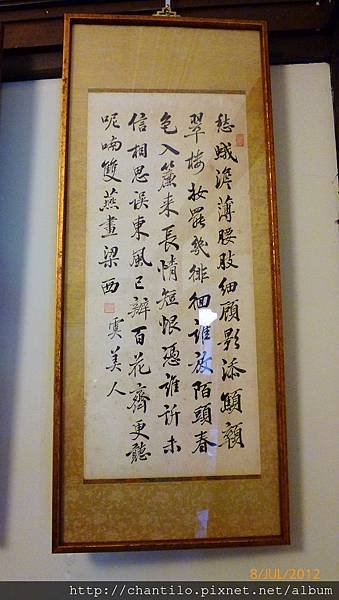 愁蛾澹薄腰肢細顧影添顦顇
翠樓妝罷幾徘徊誰放陌頭春
色入簾來長情短恨憑誰訴未
信相思誤東風已辦百花齊更聽
呢喃雙燕畫梁西 虞美人
8/JUL/2012
http://chantilo.pixnet.net/album